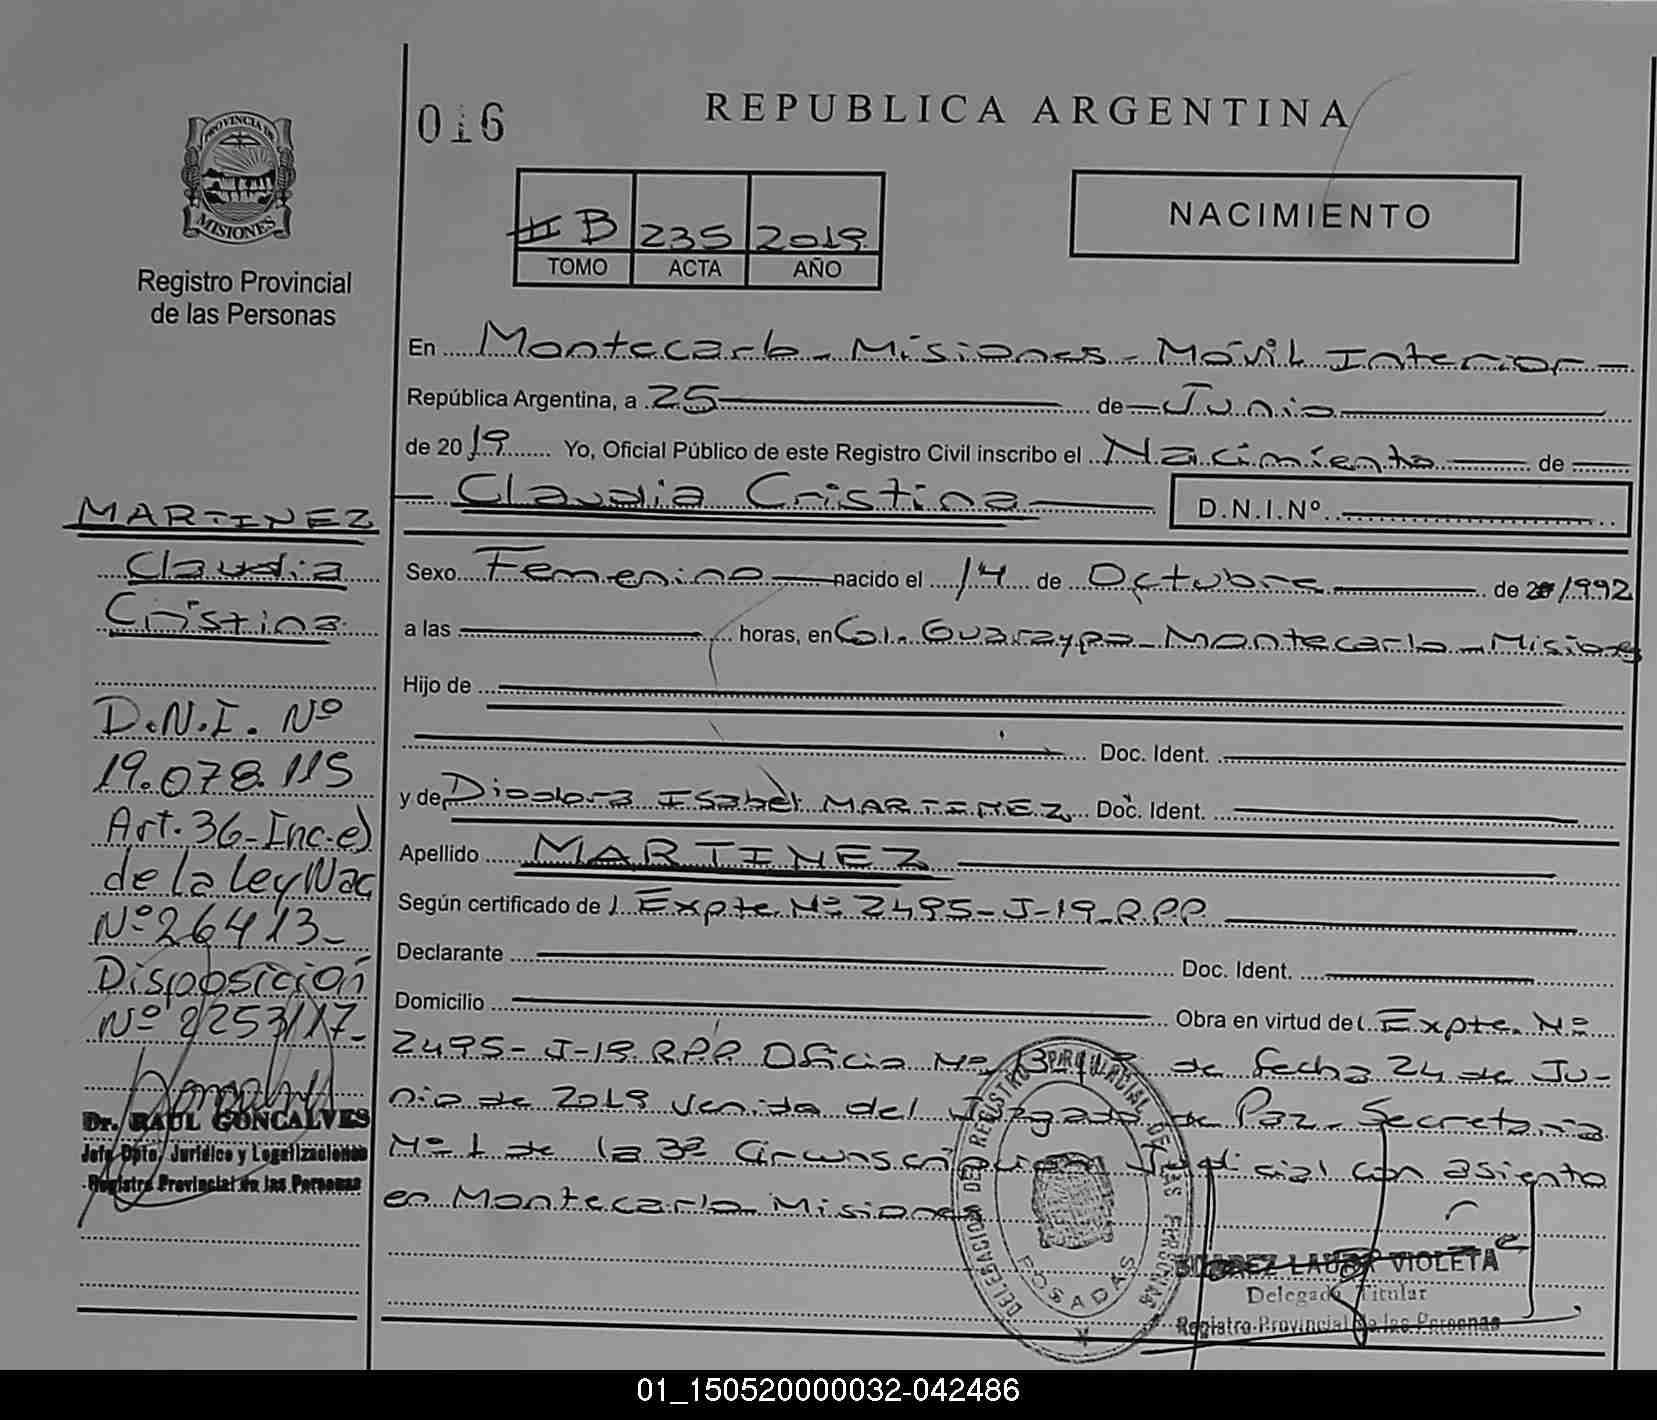 PROVINCIA DE
MISIONES
Registro Provincial
de las Personas
MARTINEZ
Claudia
Cristina
D.N.I. Nº
19.078.115
Art. 36-Inc.e)
de la Ley Nac
Nº 26413-
Disposición
Nº 2253/17-
Dr. RAUL GONCALVES
Jefe Dpto. Jurídico y Legalizaciones
Registro Provincial de las Personas
016
REPUBLICA ARGENTINA
B 235 2019
TOMO ACTA AÑO
NACIMIENTO
En Montecarlo - Misiones - Móvil Interior -
República Argentina, a 25 de Junio
de 2019 Yo, Oficial Público de este Registro Civil inscribo el Nacimiento de
Claudia Cristina D.N.I.Nº
Sexo Femenino nacido el 14 de Octubre de 1992
a las horas, en Col. Guaraypo - Montecarlo - Misiones
Hijo de
Doc. Ident.
y de Diodora Isabel MARTINEZ Doc. Ident.
Apellido MARTINEZ
Según certificado de l Expte. Nº 2495-J-19 R.P.P.
Declarante Doc. Ident.
Domicilio Obra en virtud del Expte. Nº
2495-J-19 R.P.P. Oficio Nº de fecha 24 de Ju-
nio de 2019 venido del Juzgado de Paz - Secretaria
Nº 1 de la 3ª Circunscripcion Judicial con asiento
en Montecarlo Misiones
DELEGACION DEL REGISTRO PROVINCIAL DE LAS PERSONAS
POSADAS
LAURA VIOLETA
Delegada Titular
Registro Provincial de las Personas
01_150520000032-042486